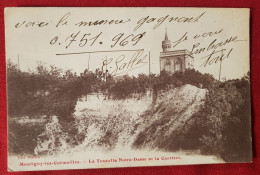 voici le numéro gagnant
0.751.969
je vous
embrasse
tout
Montigny-les-Cormeilles. - La Tourelle Notre-Dame et la Carrière